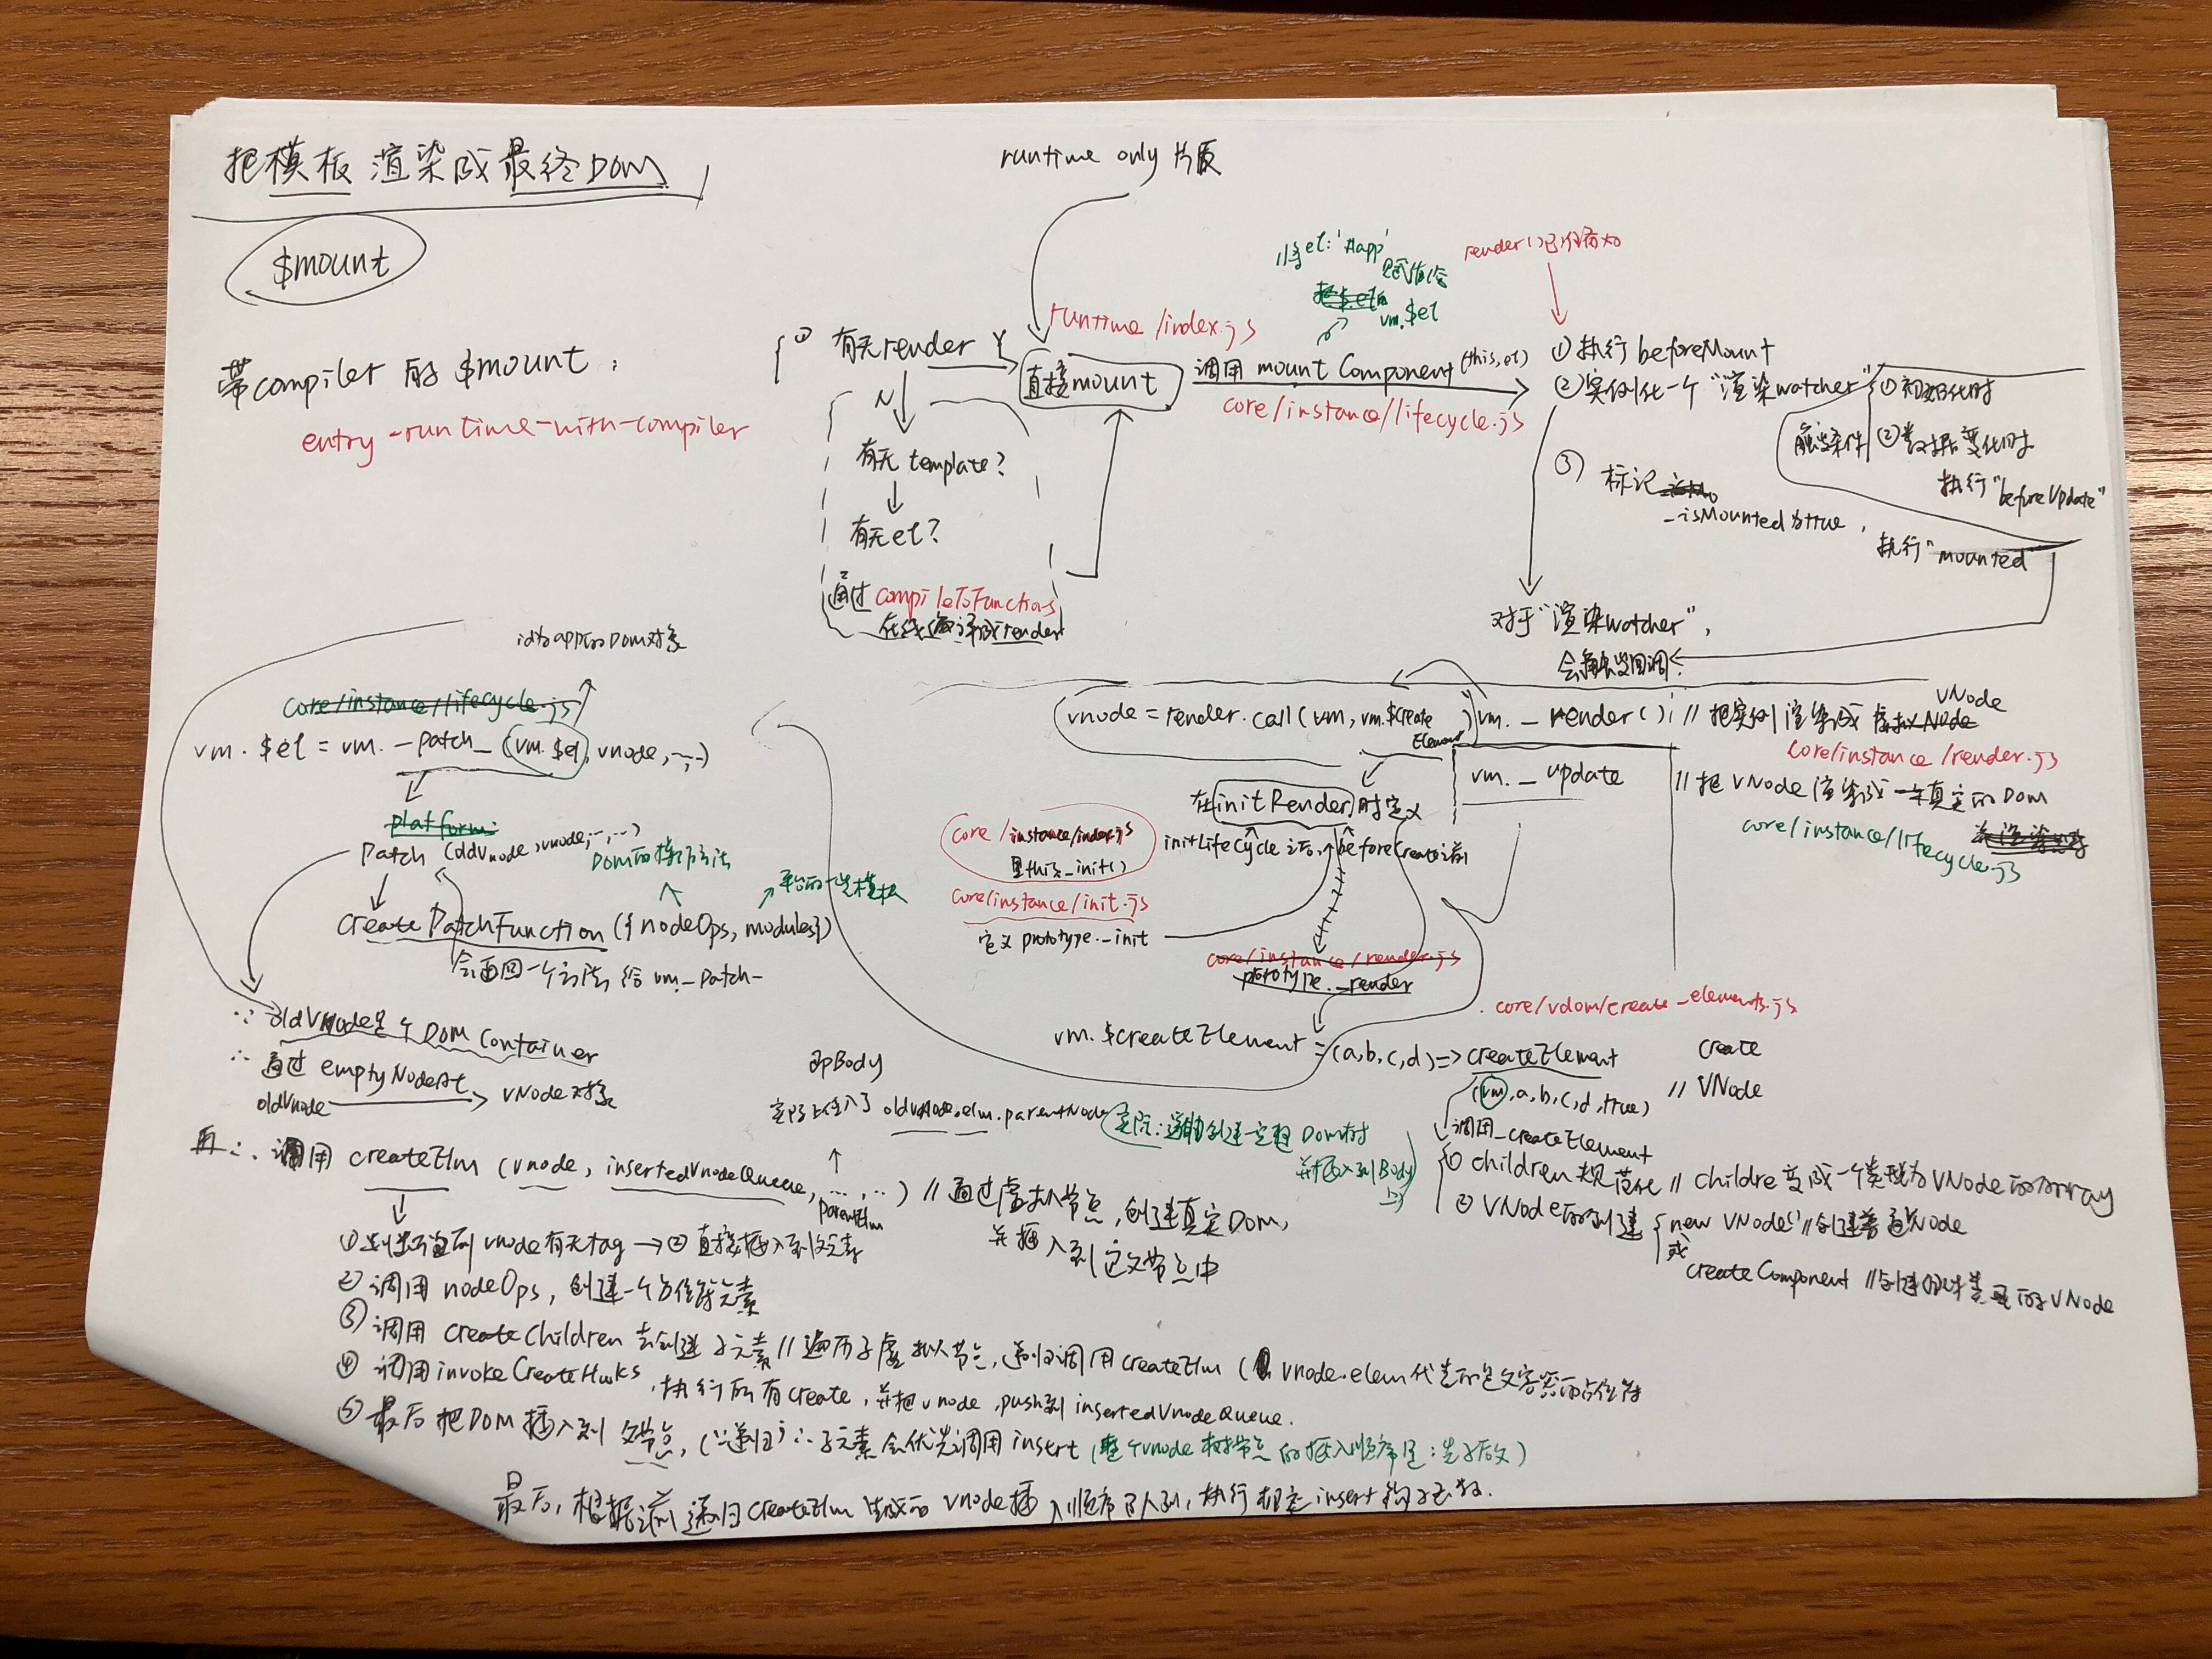 把模板渲染成最终DOM
$mount
runtime only 版
带compiler 的 $mount:
entry-runtime-with-compiler
① 有无render Y
N
有无 template?
有无el?
通过 compileToFunctions
在线编译成render
runtime/index.js
直接mount
调用 mount Component (this, el)
core/instance/lifecycle.js
//将el:'#app'
赋值给
vm.$el
render()已准备如
① 执行 beforeMount
② 实例化一个 "渲染watcher"
触发条件
① 初始化时
② 数据变化时
执行 "beforeUpdate"
③ 标记
_isMounted 为true,
执行 "mounted"
对于 "渲染watcher",
会触发回调:
id为app的DOM对象
core/instance/lifecycle.js
vm.$el = vm._patch_ (vm.$el, vnode, ...)
platform:
patch (oldVnode, vnode, ..., ...)
DOM的操作方法
平台的一些模块
createPatchFunction ({nodeOps, modules})
会返回一个方法 给 vm._patch_
∵ oldVNode是个DOM Container
∴ 通过 emptyNodeAt
oldVnode → vNode 对象
vnode = render.call(vm, vm.$createElement)
vm._render(); // 把实例渲染成 虚拟Node VNode
core/instance/render.js
vm._update
// 把VNode 渲染成一个真实的DOM
core/instance/lifecycle.js
在initRender时定义
initLifeCycle 之后, beforeCreate之前
core/instance/index.js
里this._init()
core/instance/init.js
定义 prototype._init
core/instance/render.js
prototype._render
core/vdom/create-elements.js
vm.$createElement = (a,b,c,d) => createElement
(vm, a, b, c, d, true) // create VNode
调用_createElement
① children 规范化 // childre变成一个类型为VNode的array
② VNode的创建 new VNode() // 创建普通VNode
或
createComponent // 创建组件类型的VNode
即Body
实际上传入了 oldVNode.elm.parentNode
实际: 递归创建一完整 Dom树
并插入到Body
上
再∵ 调用 createElm (vnode, insertedVnodeQueue, ..., ...) // 通过虚拟节点, 创建真实DOM,
parentElm
并插入到它父节点中
① 判断当前vnode有无tag → ② 直接插入到父元素
② 调用 nodeOps, 创建一个占位符元素
③ 调用 createChildren 去创建子元素 // 遍历子虚拟节点, 递归调用createElm ( vnode.elem代表的是父容器的占位符
④ 调用 invokeCreateHooks, 执行所有create, 并把 vnode push到 insertedVnodeQueue.
⑤ 最后把DOM插入到 父节点, (∵递归) ∴ 子元素会优先调用 insert (整个vnode 树节点的插入顺序是: 先子后父)
最后, 根据 递归 createElm 生成的 vnode 插入顺序队列, 执行相应 insert 钩子函数.